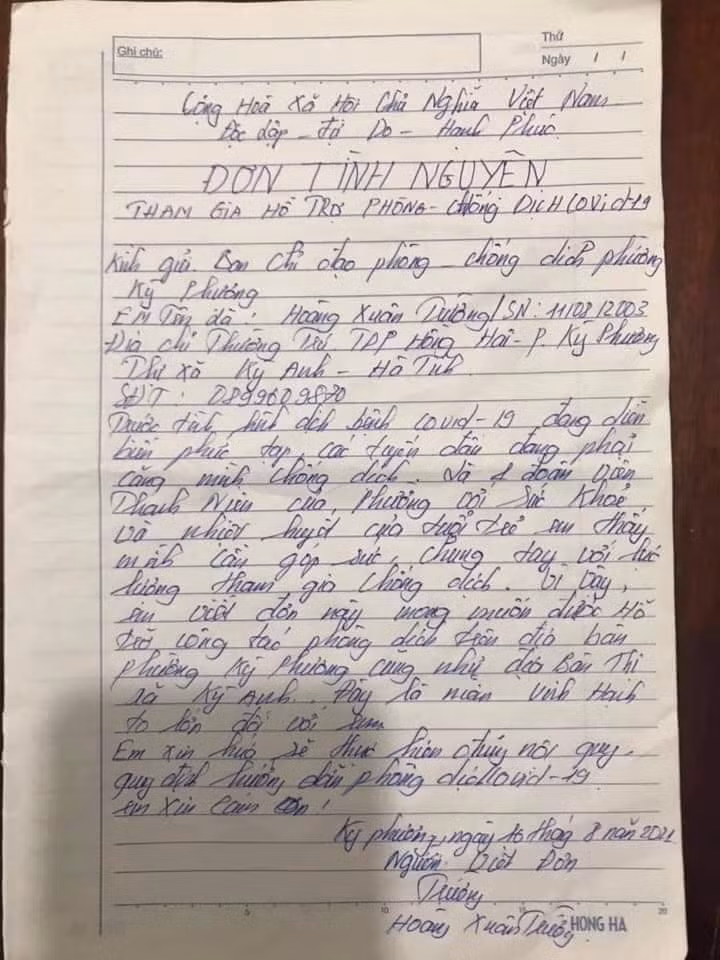 Ghi chú:
Thứ
Ngày / /
Cộng Hoà Xã Hội Chủ Nghĩa Việt Nam
Độc lập - Tự Do - Hạnh Phúc
ĐƠN TÌNH NGUYỆN
THAM GIA HỖ TRỢ PHÒNG - CHỐNG DỊCH COVID-19
Kính gửi. Ban chỉ đạo phòng - chống dịch phường
Kỳ Phương
EM Tên là: Hoàng Xuân Trường / SN: 11/08/2003
Địa chỉ Thường Trú TDP Hồng Hải - P. Kỳ Phương
Thị xã Kỳ Anh - Hà Tĩnh
SĐT:
Trước tình hình dịch bệnh covid-19 đang diễn
biến phức tạp, các tuyến đầu đang phải
căng mình chống dịch. Là 1 đoàn viên
Thanh Niên của Phường với sức khoẻ
và nhiệt huyết của tuổi trẻ em thấy
mình cần góp sức, chung tay với lực
lượng tham gia chống dịch. Vì vậy,
em viết đơn này mong muốn được Hỗ
trợ công tác phòng dịch trên địa bàn
phường Kỳ Phương cũng như địa Bàn Thị
xã Kỳ Anh. Đây là niềm Vinh Hạnh
to lớn đối với em
Em xin hứa sẽ thực hiện đúng nội quy,
quy định hướng dẫn phòng dịch Covid-19
em xin cảm ơn!
Kỳ phương, ngày 16 tháng 8 năm 2021
Người Viết Đơn
Trường
Hoàng Xuân Trường
5 10 15 20
HONG HA